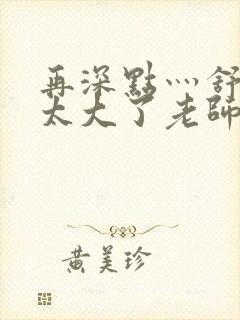 再深點灬舒
太大了老師
黃美珍